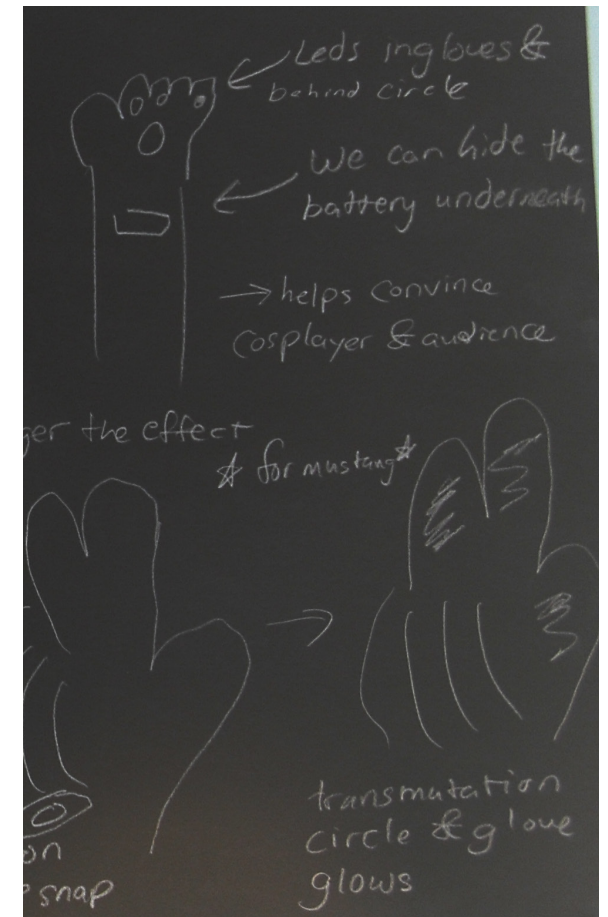 Leds in gloves &
behind circle
We can hide the
battery underneath
→ helps convince
cosplayer & audience
ger the effect
☆ for mustang ☆
transmutation
circle & glove
glows
on
snap